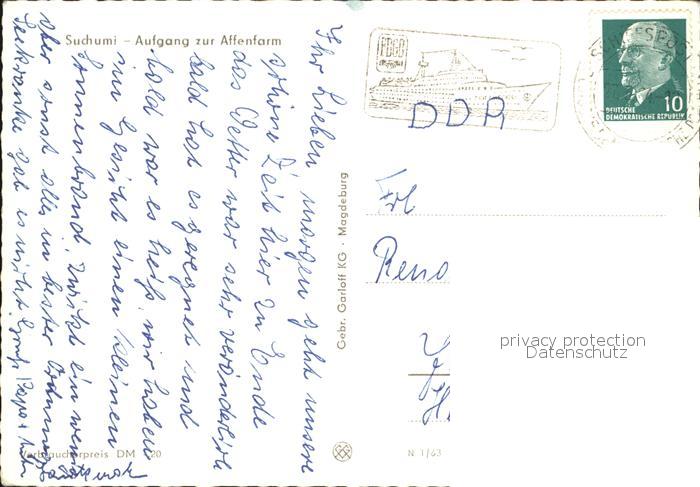 Suchumi – Aufgang zur Affenfarm
Ihr lieben morgen geht unsere
schöne Zeit hier zu Ende
das Wetter war sehr veränderlich
bald hat es geregnet und
bald war es heiß, wir haben
im Gesicht einen kleinen
Sonnenbrand, zwickt ein wenig
aber sonst alles in bester Ordnung
Seekranke gab es nicht. Gruß Papa +
Verbraucherpreis DM 20
Gebr. Garloff KG · Magdeburg
N 1/63
FDGB
DDR
DEUTSCHE
DEMOKRATISCHE REPUBLIK
10
Frl
Reno
privacy protection
Datenschutz